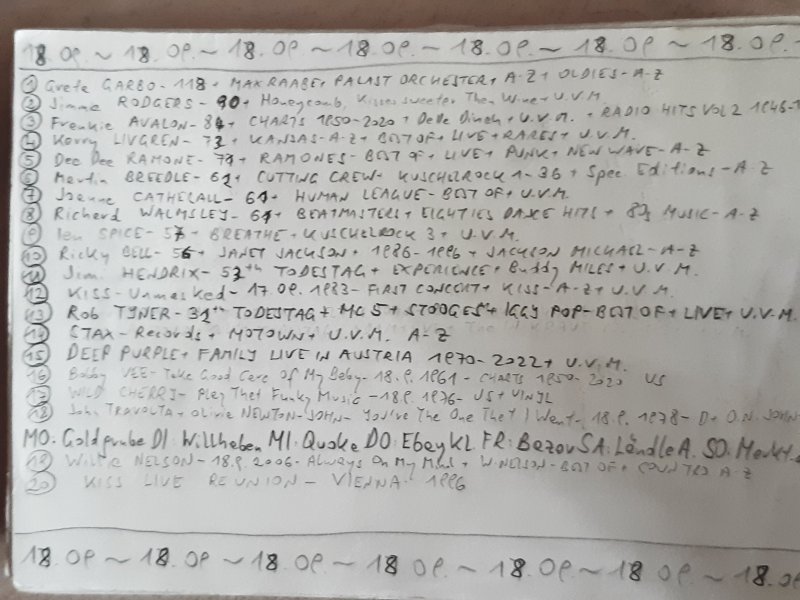 18.09. ~ 18.09. ~ 18.09. ~ 18.09. ~ 18.09. ~ 18.09. ~ 18.09. -
① Greta GARBO - 118 + MAX RAABE + PALAST ORCHESTER + A-Z + OLDIES - A-Z
② Jimmie RODGERS - 90 + Honeycomb, Kisses sweeter Then Wine + U.V.M.
③ Frankie AVALON - 84 + CHARTS 1950-2020 + Dede Dinah + U.V.M. + RADIO HITS VOL 2 1945-1
④ Kerry LIVGREN - 73 + KANSAS - A-Z + BEST OF + LIVE + RARES + U.V.M.
⑤ Dee Dee RAMONE - 71 + RAMONES - BEST OF + LIVE + PUNK + NEW WAVE - A-Z
⑥ Martin BREEDLE - 62 + CUTTING CREW - KUSCHELROCK 1-36 + Spec. Editions - A-Z
⑦ Joanne CATHERALL - 61 + HUMAN LEAGUE - BEST OF + U.V.M.
⑧ Richard WALMSLEY - 61 + BEATMASTERS + EIGHTIES DANCE HITS + 80s MUSIC - A-Z
⑨ Ian SPICE - 57 + BREATHE + KUSCHELROCK 3 + U.V.M.
⑩ Ricky BELL - 56 + JANET JACKSON + 1986-1996 + JACKSON MICHAEL - A-Z
⑪ Jimi HENDRIX - 53th TODESTAG + EXPERIENCE + Buddy MILES + U.V.M.
⑫ KISS - Unmasked - 17.09.1983 - FIRST CONCERT + KISS - A-Z + U.V.M.
⑬ Rob TYNER - 32th TODESTAG + MC 5 + STOOGES + IGGY POP - BEST OF + LIVE + U.V.M.
⑭ STAX - Records + MOTOWN + U.V.M. A-Z
⑮ DEEP PURPLE + FAMILY LIVE IN AUSTRIA 1970-2022 + U.V.M.
⑯ Bobby VEE - Take Good Care Of My Baby - 18.9.1961 - CHARTS 1950-2020 US
⑰ WILD CHERRY - Play That Funky Music - 18.9.1976 - US + VINYL
⑱ John TRAVOLTA + Olivia NEWTON-JOHN - You're The One That I Want - 18.9.1978 - D + O.N. JOHN-
MO: Goldgrube DI: Willhaben MI: Quoka DO: Ebay KL. FR: Bazar SA: Ländle A. SO: Markt.
⑲ Willie NELSON - 18.9.2006 - Always On My Mind + W. NELSON - BEST OF + COUNTRY A-Z
⑳ KISS LIVE REUNION - VIENNA - 1996
18.09 ~ 18.09 ~ 18.09 ~ 18.09 ~ 18.09 ~ 18.09 ~ 18.09